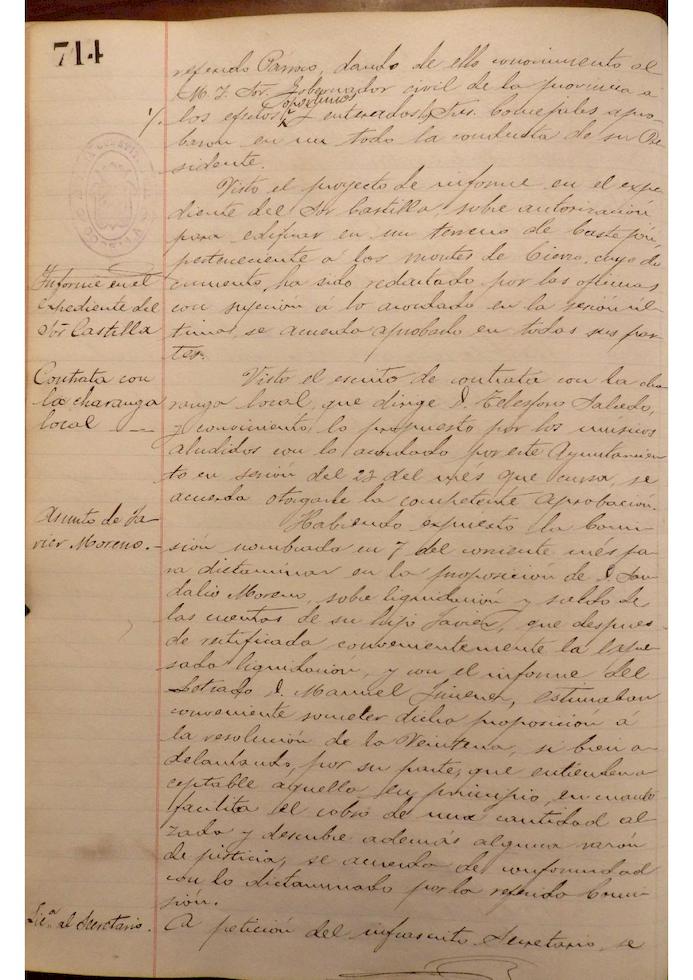 714
referido Párroco, dando de ello conocimiento al
M. I. Sor. Gobernador civil de la provincia á
oportunos
los efectos y enterados los Sres. Concejales apro-
baron en un todo la conducta de su Pre-
sidente.
Visto el proyecto de informe en el expe-
diente del Sor Castilla, sobre autorización
para edificar en un terreno de Castejón,
perteneciente á los montes de Cierzo, cuyo do-
Informe en el
expediente del
Sor Castilla
cumento, ha sido redactado por las oficinas
con sujeción á lo acordado en la sesión úl-
tima, se acuerda aprobarlo en todas sus par-
tes.
Contrata con
la charanga
local
Visto el escrito de contrata con la cha-
ranga local, que dirige D. Telesforo Salcedo,
y conviniendo lo propuesto por los músicos
aludidos con lo acordado por este Ayuntamien-
to en sesión del 23 del més que cursa, se
acuerda otorgarle la competente aprobación.
Asunto de Ja-
vier Moreno.
Habiendo expuesto la Comi-
sión nombrada en 7 del corriente més pa-
ra dictaminar en la proposición de D. San-
dalio Moreno, sobre liquidación y saldo de
las cuentas de su hijo Javier, que despues
de rectificada convenientemente la expre-
sada liquidación, y con el informe del
Letrado D. Manuel Jimenez, estimaban
conveniente someter dicha proposición á
la resolución de la Veintena, si bien a-
delantando, por su parte, que entienden a-
ceptable aquella en principio, en cuanto
facilita el cobro de una cantidad al-
zada y descubre además alguna razón
de justicia, se acuerda de conformidad
con lo dictaminado por la referida Comi-
sión.
Lic.ª al Secretario.
A petición del infrascrito Secretario, se